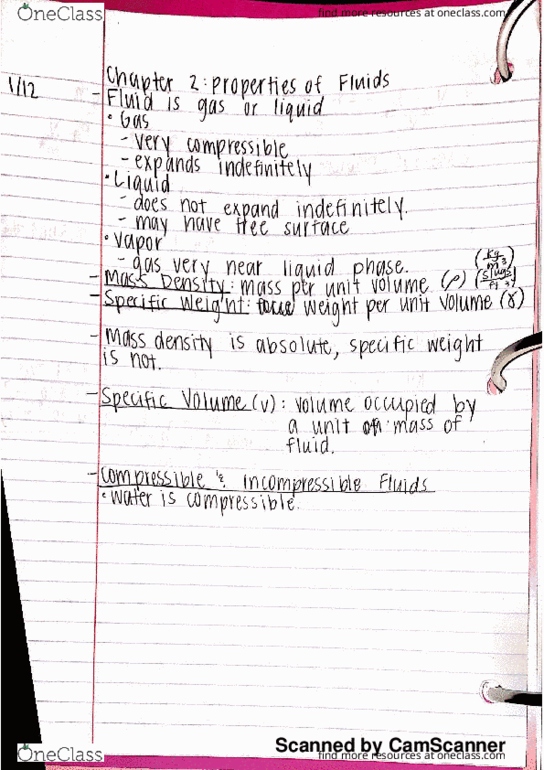 OneClass
find more resources at oneclass.com
1/12
Chapter 2: Properties of Fluids
- Fluid is gas or liquid
• Gas
- very compressible
- expands indefinitely
• Liquid
- does not expand indefinitely.
- may have free surface
• Vapor
- gas very near liquid phase.
- Mass Density: mass per unit volume (ρ) (kg/m³) (slugs/ft³)
- Specific Weight: weight per unit volume (γ)
- Mass density is absolute, specific weight
is not.
- Specific Volume (v): volume occupied by
a unit of mass of
fluid.
- Compressible & incompressible Fluids
• Water is compressible.
Scanned by CamScanner
OneClass
find more resources at oneclass.com